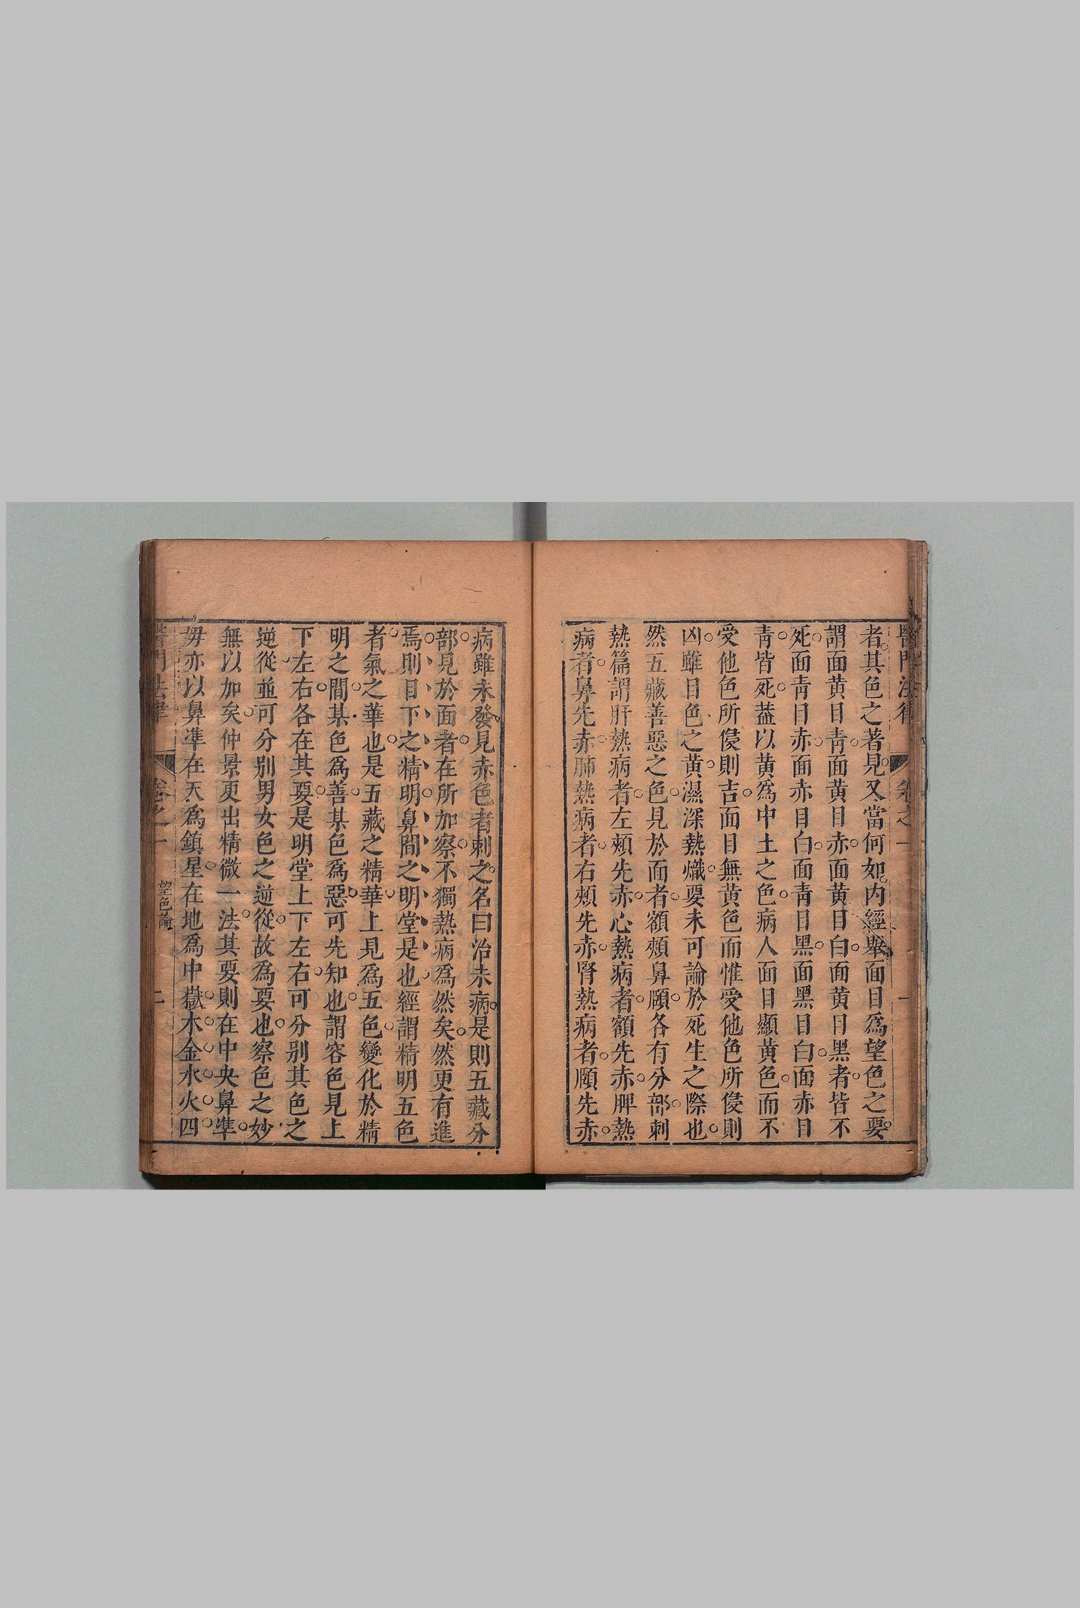 醫門法律 卷之一 一
者其色之著見又當何如內經舉面目爲望色之要
謂面黃目青面黃目赤面黃目白面黃目黑者皆不
死面青目赤面赤目白面青目黑面黑目白面赤目
青皆死葢以黃爲中土之色病人面目顯黃色而不
受他色所侵則吉面目無黃色而惟受他色所侵則
凶雖目色之黃濕深熱熾要未可論於死生之際也
然五藏善惡之色見於面者額頰鼻頤各有分部刺
熱篇謂肝熱病者左頰先赤心熱病者額先赤脾熱
病者鼻先赤肺熱病者右頰先赤腎熱病者頤先赤
病雖未發見赤色者刺之名曰治未病是則五藏分
部見於面者在所加察不獨熱病爲然矣然更有進
焉則目下之精明鼻間之明堂是也經謂精明五色
者氣之華也是五藏之精華上見爲五色變化於精
明之間某色爲善某色爲惡可先知也謂容色見上
下左右各在其要是明堂上下左右可分別其色之
逆從並可分別男女色之逆從故爲要也察色之妙
無以加矣仲景更出精微一法其要則在中央鼻準
毋亦以鼻準在天爲鎮星在地爲中嶽木金水火四
醫門法律 卷之一 望色論 二